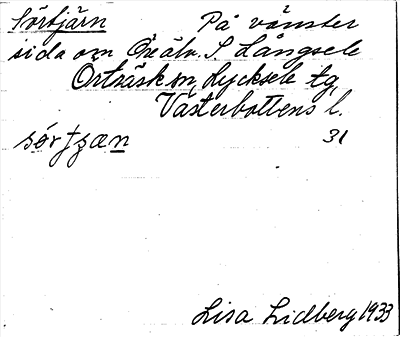 Sörtjärn På vänster
sida om Öreälv. S Långsele
Örträsk sn, Lycksele tg,
Västerbottens l.
31
Lisa Lidberg 1933